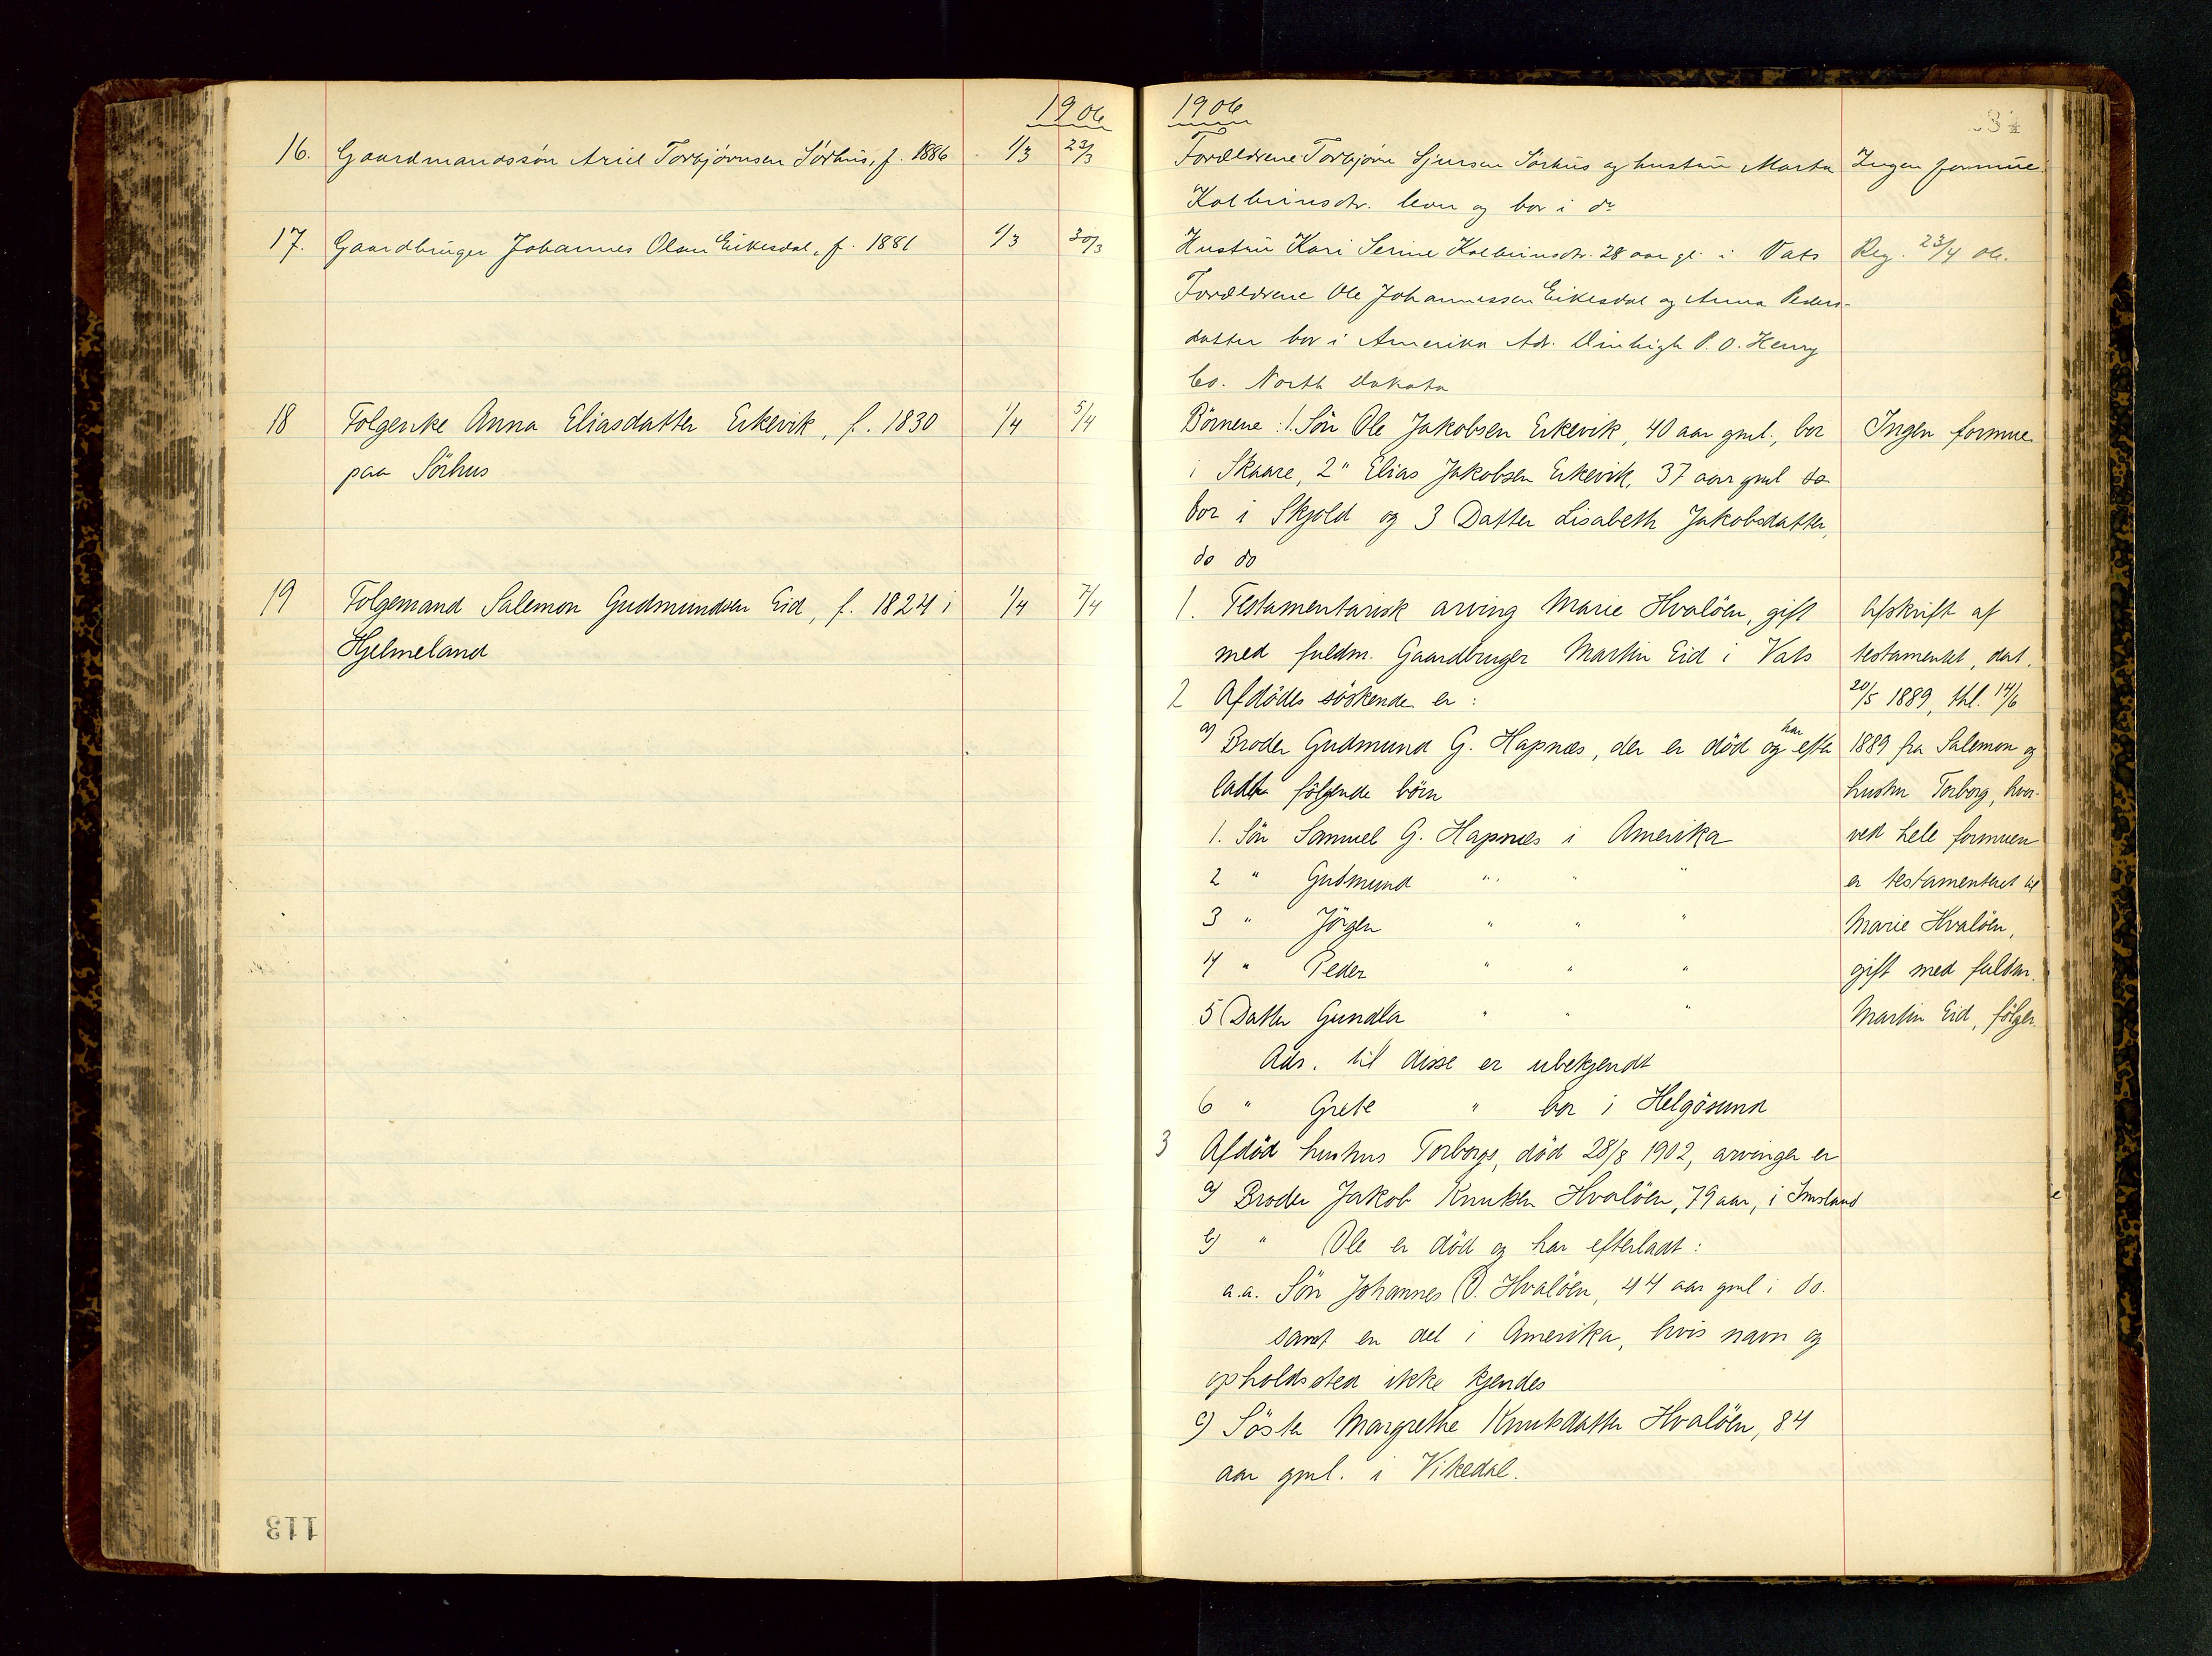 1906
16. Gaardmandssøn Ariel Torbjørnsen Sørhus, f. 1886 1/3 23/3
17. Gaardbruger Johannes Olsen Eikesdal, f. 1881 1/3 30/3
18 Folgenke Anna Eliasdatter Erkevik, f. 1830 1/4 5/4
paa Sörhus
19 Folgemand Salemon Gudmundsen Eid, f. 1824 i 1/4 7/4
Hjelmeland
113
1906
Forældrene Torbjørn Sjursen Sørhus og hustru Marta Ingen formue
Kolbeinsdtr. lever og bor i do
Hustru Kari Serine Kolbeinsdtr. 28 aar gl. i Vats Reg. 23/4 06.
Forældrene Ole Johannessen Eikesdal og Anna Peders-
datter bor i Amerika Adr. P. O. Henry
Co. North Dakota
Börnene: 1. Sön Ole Jakobsen Erkevik, 40 aar gml., bor Ingen formue
i Skaare, 2 " Elias Jakobsen Erkevik, 37 aar gml do
bor i Skjold og 3 Datter Lisabeth Jakobsdatter,
do do
1. Testamentarisk arving Marie Hvalöen, gift Afskrift af
med fuldm. Gaardbruger Martin Eid i Vats testamentet, dat.
2 Afdödes söskende er: 20/5 1889, thl. 14/6
a) Broder Gudmund G. Hapnæs, der er död og har efter 1889 fra Salemon og
ladt følgende börn hustru Torborg, hvor-
1. Sön Samuel G. Hapnæs i Amerika ved hele formuen
2 " Gudmund " " " er testamenteret til
3 " Jörgen " " " Marie Hvalöen,
4 " Peder " " " gift med fuldm.
5 Datter Gundla " " " Martin Eid, fölger.
Adr. til disse er ubekjendt
6 " Grete " bor i Helgösund
3 Afdöd hustrus Torborgs, död 28/8 1902, arvinger er
a) Broder Jakob Knutsen Hvalöen, 79 aar, i Imsland
b) " Ole er död og har efterladt:
a.a. Sön Johannes O. Hvalöen, 44 aar gml i do.
samt en del i Amerika, hvis navn og
opholdssted ikke kjendes
c) Söster Margrethe Knutsdatter Hvalöen, 84
aar gml. i Vikedal.